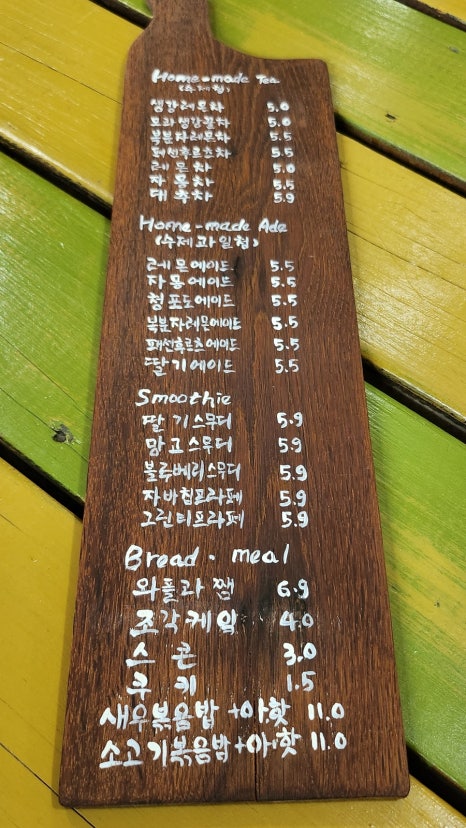 Home-made Tea
(수제청)
생강레몬차 5.0
모과생강꿀차 5.0
복분자레몬차 5.5
패션후르츠차 5.5
레몬차 5.0
자몽차 5.5
대추차 5.9
Home-made Ade
(수제과일청)
레몬에이드 5.5
자몽에이드 5.5
청포도에이드 5.5
복분자레몬에이드 5.5
패션후르츠에이드 5.5
딸기에이드 5.5
Smoothie
딸기스무디 5.9
망고스무디 5.9
블루베리스무디 5.9
자바칩프라페 5.9
그린티프라페 5.9
Bread · meal
와플과 쨈 6.9
조각케잌 4.0
스콘 3.0
쿠키 1.5
새우볶음밥 +아/핫 11.0
소고기볶음밥+아/핫 11.0